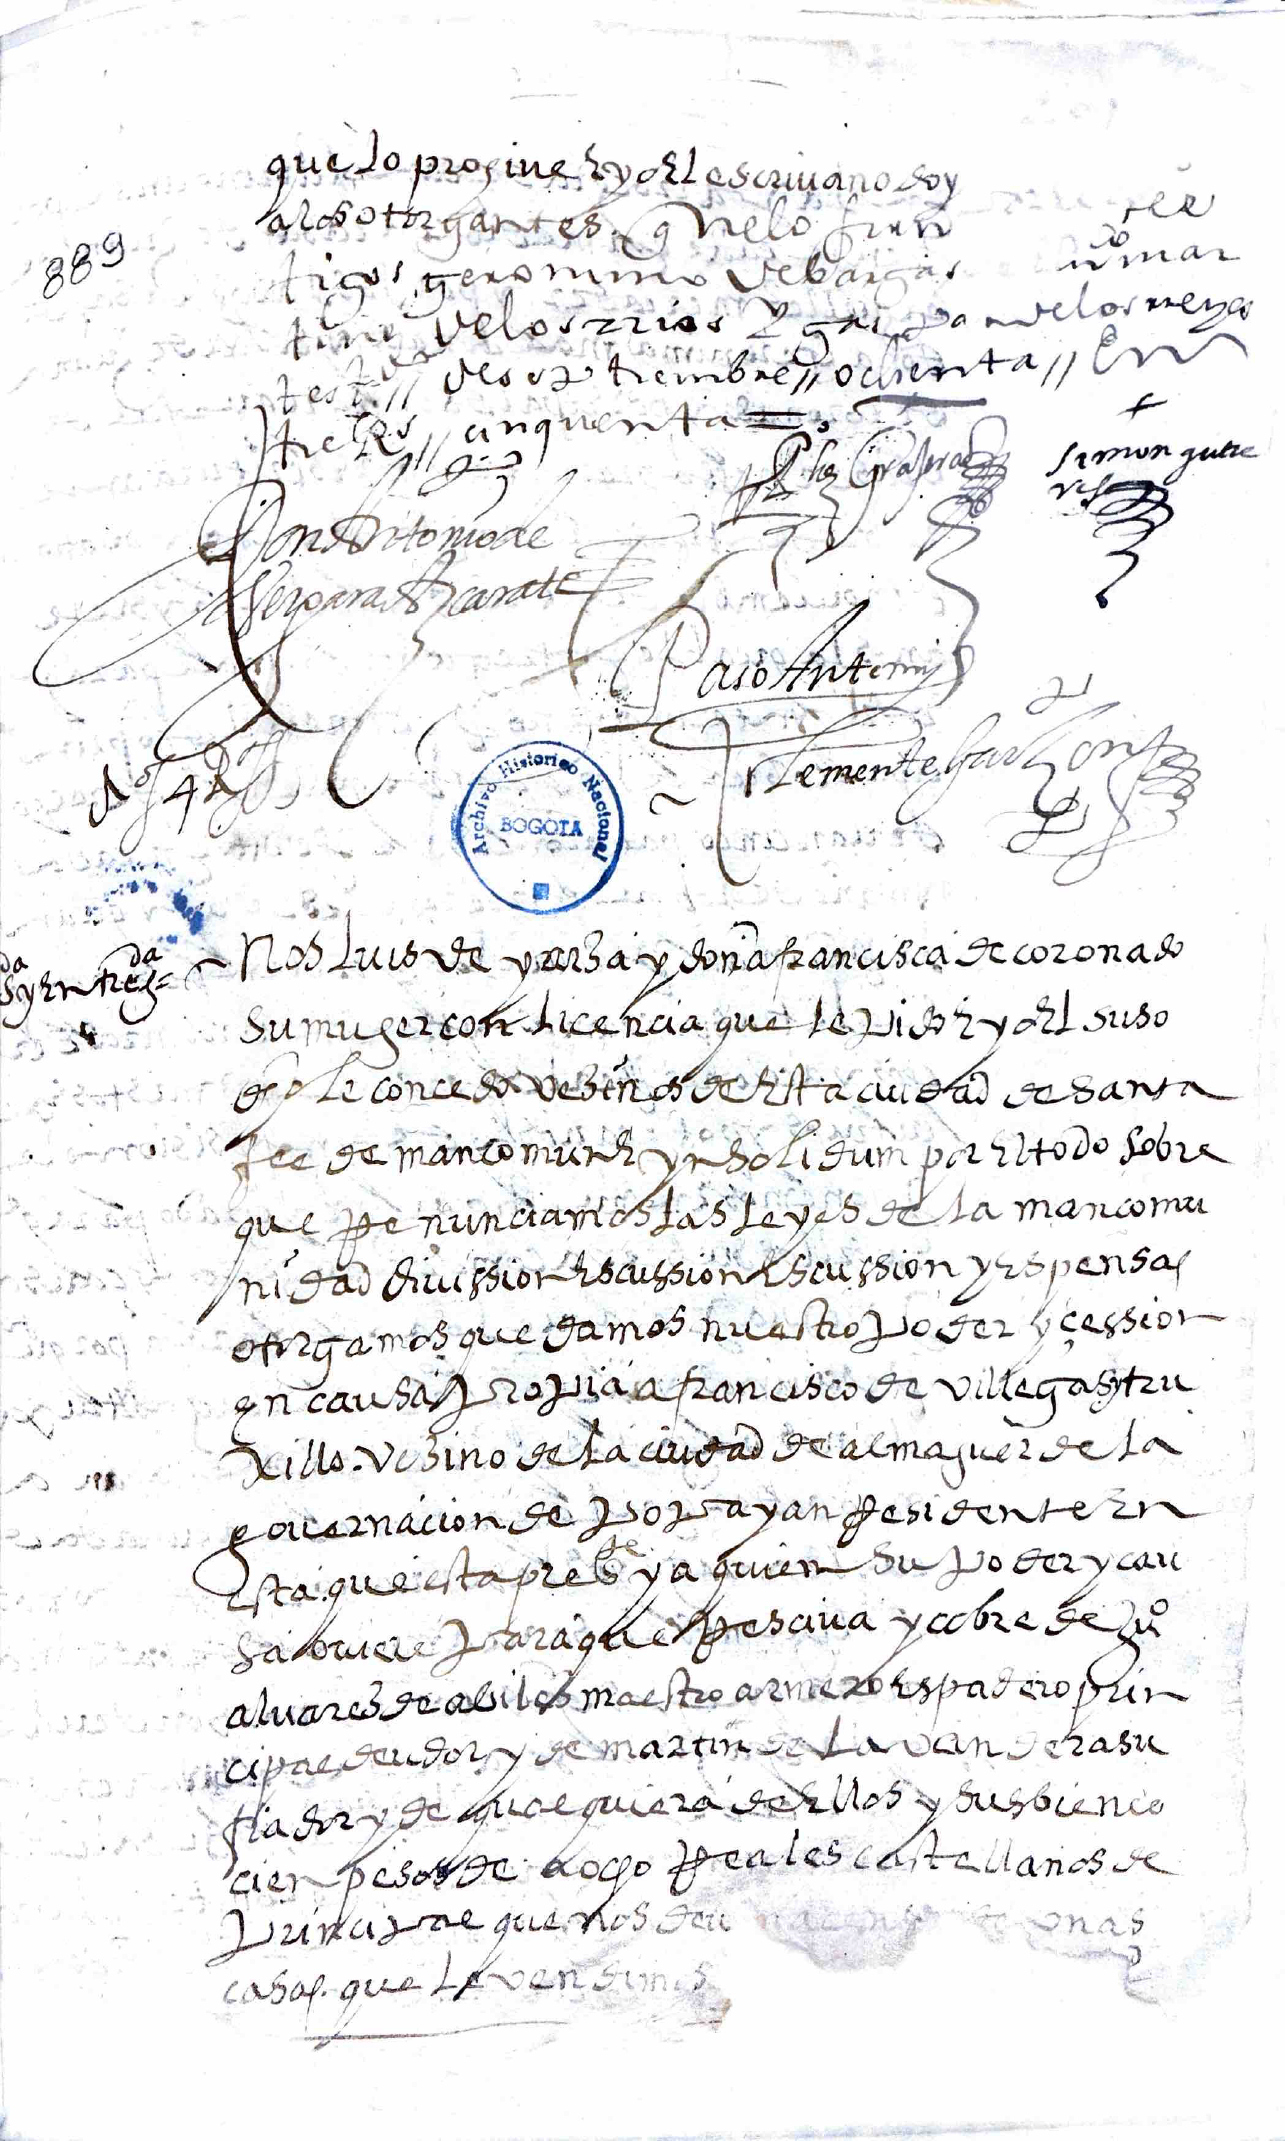 889
que loprosive E yo El escrivano doy
a los otorgantes que lo firm fee
tigos geronimo de bargas Juº mar
tine de los rrios y gas par de los rreyes
testdo // de septiembre // ochenta // Em
tre Rs // cinquenta =
simon gutie
rres
Don Antonio de
Vergara Azcarate
Paso Ante mi
Clemente Garzon
Archivo Historico Nacional
BOGOTA
da syentregda
Nos Luis de yerba y doña francisca de coronado
su muger con licencia que le pido E yo El suso
dho le concedo vesinos de Esta ciudad de Santa
fee de mancomun E ynsolidum por El todo sobre
que Renunciamos las leyes de la mancomu
nidad divission Escussion Escussion y Espensas
otorgamos que damos nuestro poder y çession
en causa propia a francisco de Villegas y tru
xillo vesino de la ciudad de almaguer de la
governacion de popayan Residente En
Esta que esta preste y a quien su poder y cau
sa oviere para que Resciva y cobre de Juº
alvares de abiles maestro armero espadero prin
cipal deudor y de martin de la vandera su
fiador y de qualquiera de Ellos y sus bienes
cien pesos de a ocho Reales castellanos de
principal que nos deu de unas
casas que le vendimos